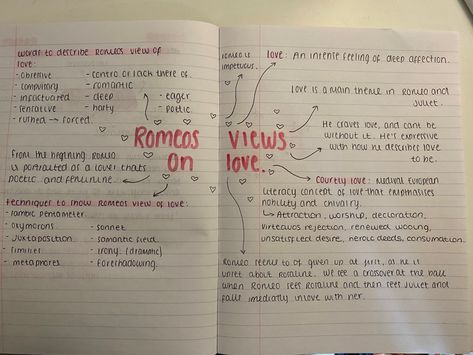 words to describe Romeos view of
love:
- objective
- contro or lack there of.
- compulsary
- romantic
- infactuated
- deep
- eager
- tentative
- hasty
- poetic.
- rushed → forced.
ROMEOS VIEWS
ON love.
From the beginning Romeo
is portraited as a lover thats
poetic and femenine.
techniques to show romeos view of love:
- iambic pentameter
- oxymorons
- sonnet
- juxtaposition
- semantic field.
- similies
- irony (dramatic)
- metaphores
- foreshadowing.
Romeo is
impetuous.
love: An intense feeling of deep affection.
love is a main theme in Romeo and
Juliet.
He craves love, and cant be
without it. He's expressive
with how he describes love
to be.
Courtly love: Medival European
literacy concept of love that emphasises
nobility and chivalry.
↳ Attraction, worship, declaration,
virteauos rejection, renewed wooing,
unsatisfied desire, heroic deeds, consumation.
Romeo seems to of given up at first, as he is
upset about rosaline. We see a crossover at the ball
when Romeo sees Rosaline and then sees Juliet and
falls imediatly inlove with her.